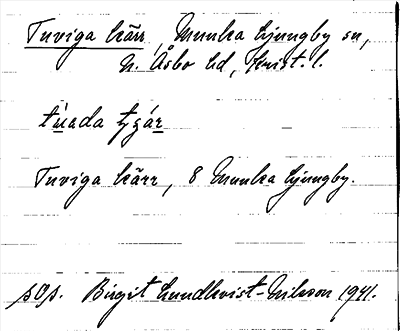 Tuviga kärr, Munka Ljungby sn,
N. Åsbo hd, Krist. l.
Tuviga kärr, 8 Munka Ljungby.
sOp. Birgit Lundkvist-Nilsson 1941.